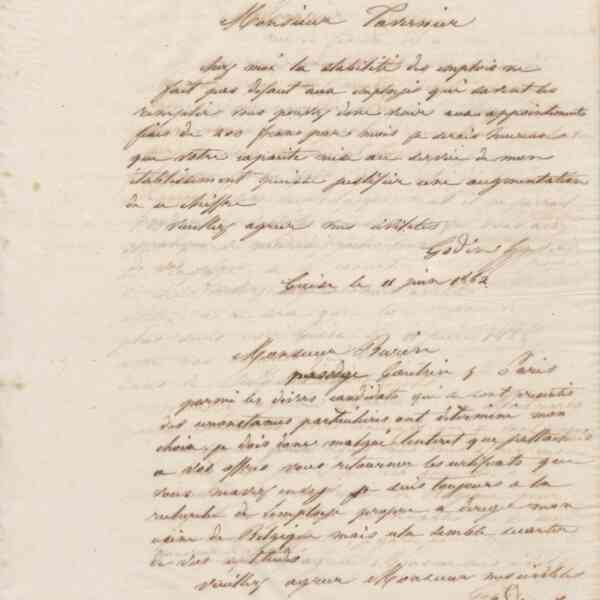 Monsieur Tavernier
Chez moi la stabilité des emplois ne
fait pas defaut aux employés qui savent les
remplir vous pouvez donc venir aux appointements
fixes de 200 francs par mois je serais heureux
que votre capacité mise au service de mon
établissement puisse justifier une augmentation
de ce chiffre
veuillez agreer mes civilités
Godin
Guise le 11 juin 1862
Monsieur Burin
passage Gautrin 4 Paris
parmi les divers candidats qui se sont presentés
des circonstances particulières ont déterminé mon
choix, je dois donc malgré l'interet que j'attache
a vos offres vous retourner les certificats que
vous m'avez envoyé je suis toujours a la
recherche de l'employé propre a diriger mon
usine de Belgique mais cela semble s'ecarter
de vos
veuillez agreer Monsieur mes civilités